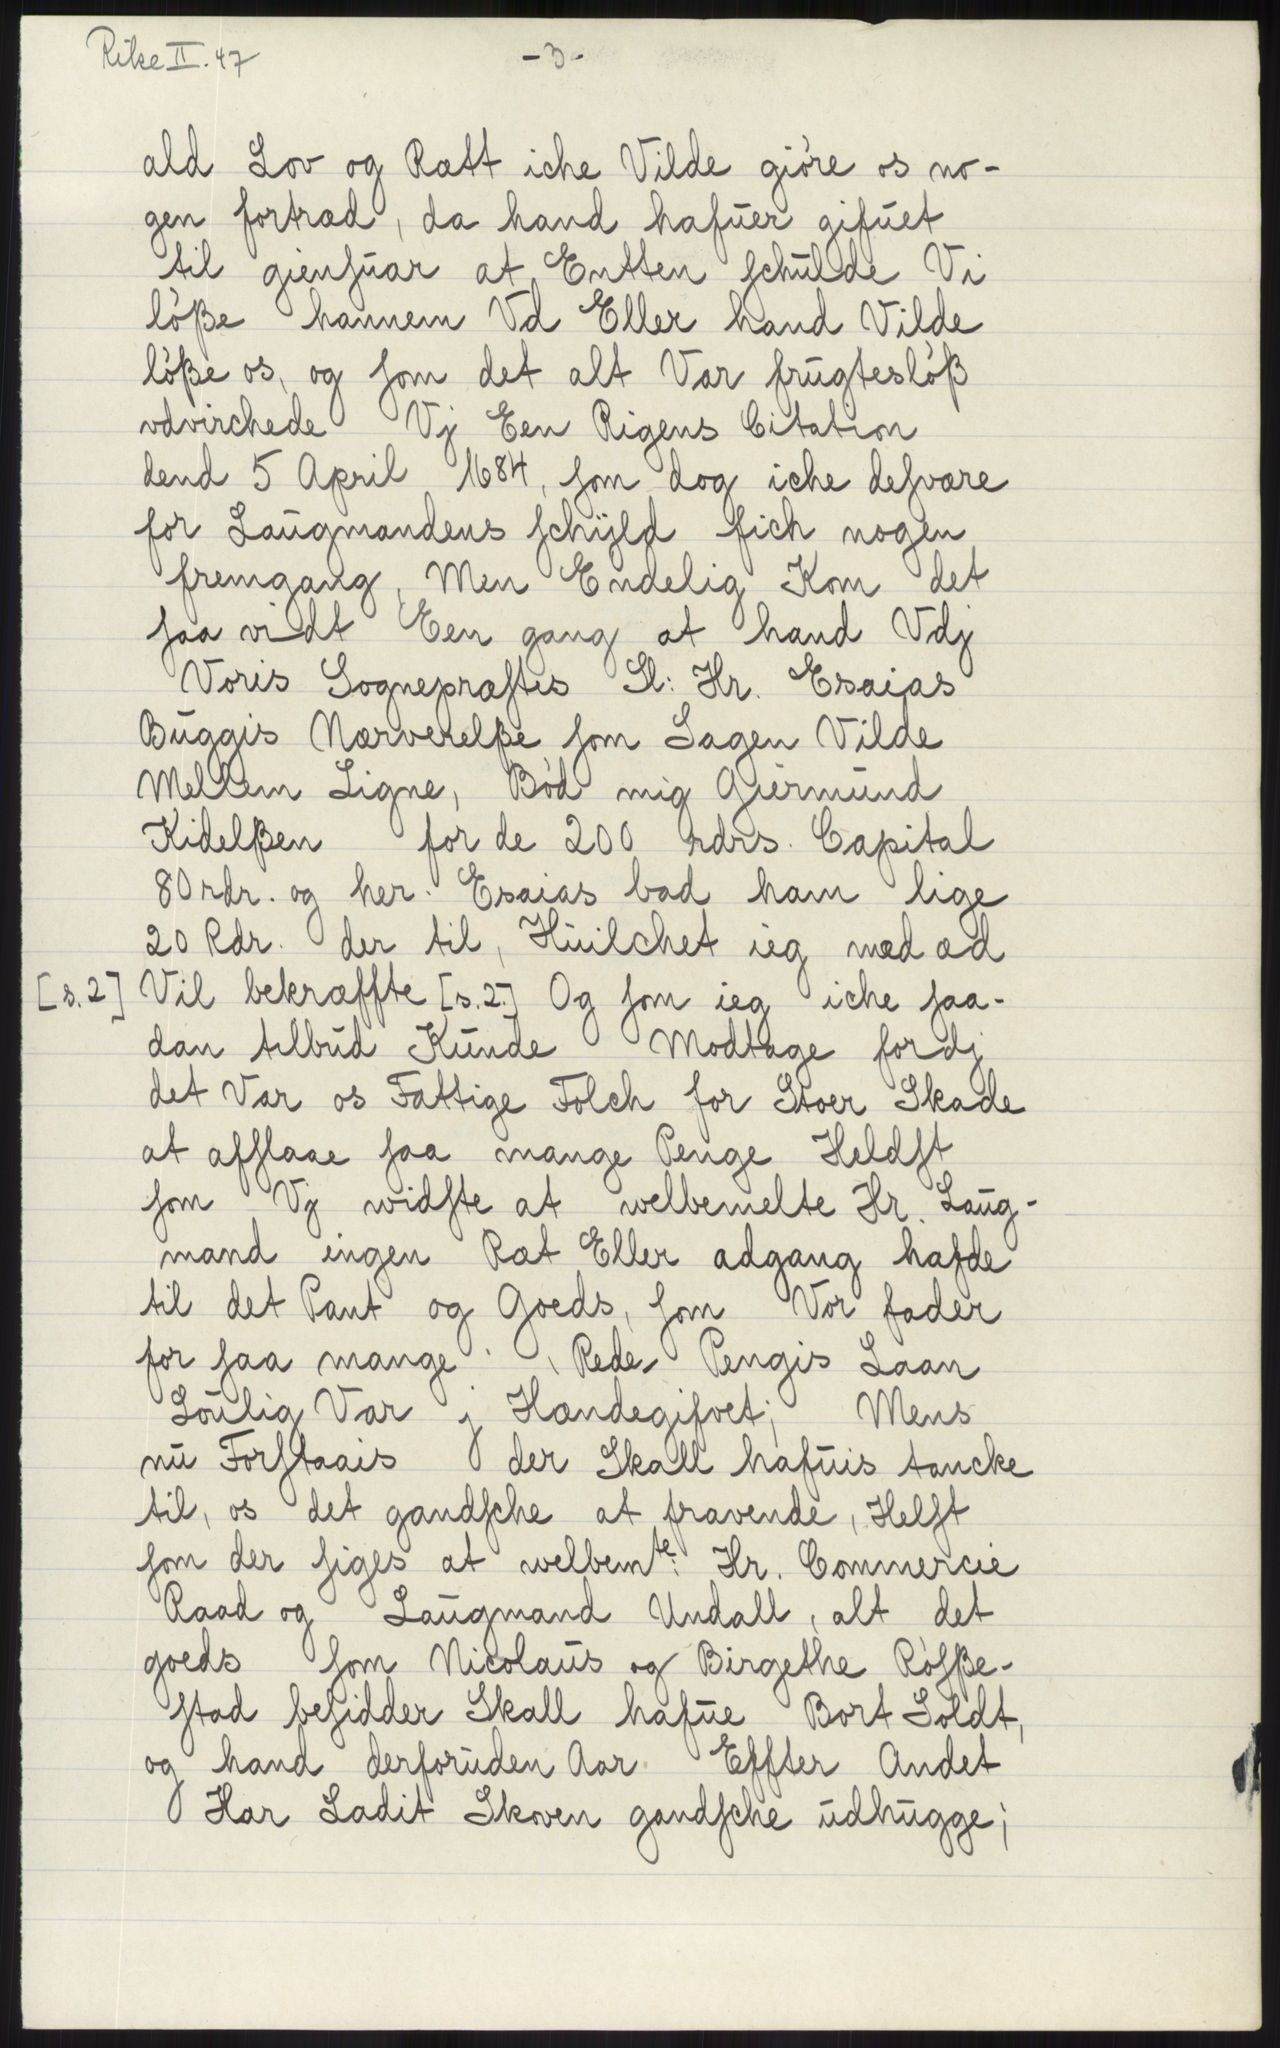 Rike II. 47
-3-
ald Lov og Rætt iche Vilde gióre os no-
gen fortræd, da hand hafuer gifuet
til giensuar at Entten schulde Vi
lóße hannem Vd Eller hand Vilde
lóße os, og som det alt Var frugteslóß
vdvirchede Vj Een Rigens Citation
dend 5 April 1684, som dog iche desvære
for Laugmandens schÿld fich nogen
fremgang, Men Endelig Kom det
saa vidt Een gang at hand Vdj
Voris Sognepræstis Sl: Hr. Esaias
Buggis Nærverelße som Sagen Vilde
Mellem Ligne, Bód mig Giermund
Kidelßen for de 200 rdrs. Capital
80 rdr. og her. Esaias bad ham lige
20 Rdr. der til, Huilchet ieg med æd
[s.2] Vil bekræffte [s.2.] Og som ieg iche saa-
dan tilbud Kunde Modtage fordj
det Var os Fattige Folch for Stoer Skade
at afslaae saa mange Penge Heldst
som Vj widste at welbemelte Hr. Laug-
mand ingen Ræt Eller adgang hafde
til det Pant og Goeds, som Vor fader
for saa mange Rede Pengis Laan
Loulig Var j Hændegifvet; Mens
nu Forstaais der Skall hafuis tancke
til, os det gandsche at fravende, Helst
som der siges at welbemte: Hr. Commercie
Raad og Laugmand Undall, alt det
goeds som Nicolaus og Birgethe Rósße-
stad besidder Skall hafue Bort Soldt,
og hand derforuden Aar Effter Andet
Har Ladit Skoven gandsche udhugge;